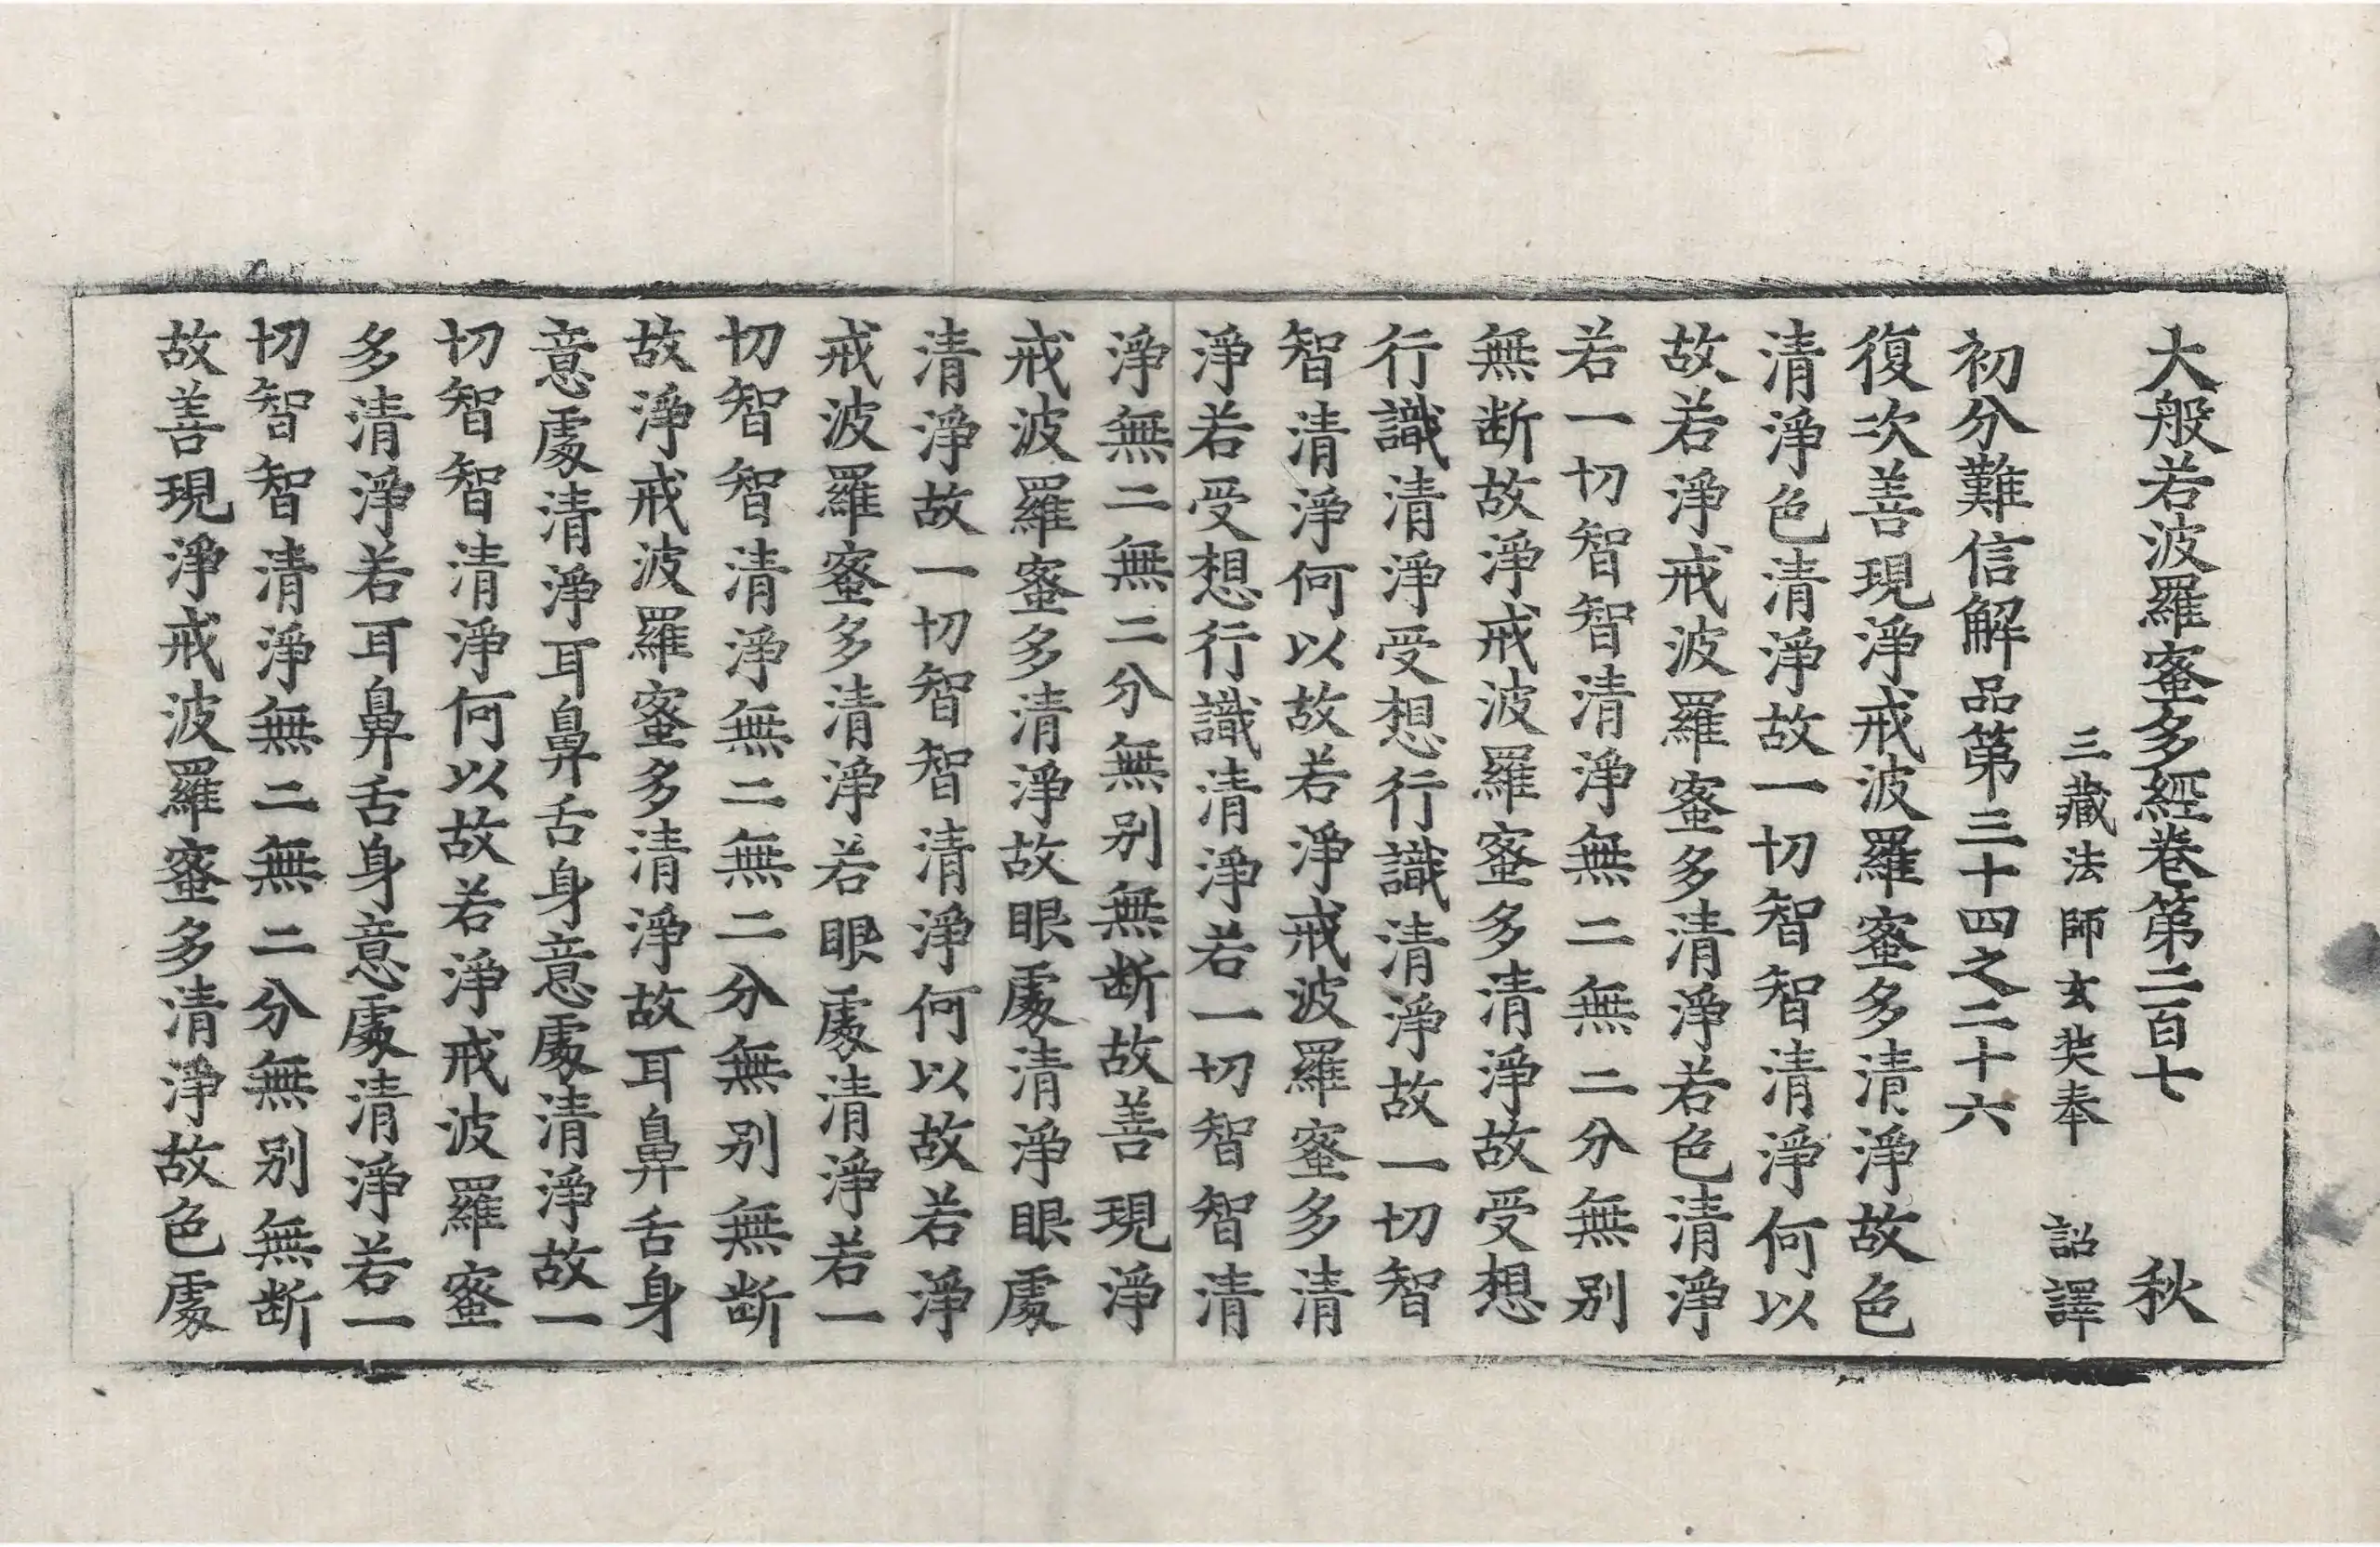 大般若波羅蜜多經卷第二百七 秋
三藏法師玄奘奉 詔譯
初分難信解品第三十四之二十六
復次善現淨戒波羅蜜多清淨故色
清淨色清淨故一切智智清淨何以
故若淨戒波羅蜜多清淨若色清淨
若一切智智清淨無二無二分無別
無断故淨戒波羅蜜多清淨故受想
行識清淨受想行識清淨故一切智
智清淨何以故若淨戒波羅蜜多清
淨若受想行識清淨若一切智智清
淨無二無二分無別無断故善現淨
戒波羅蜜多清淨故眼處清淨眼處
清淨故一切智智清淨何以故若淨
戒波羅蜜多清淨若眼處清淨若一
切智智清淨無二無二分無別無断
故淨戒波羅蜜多清淨故耳鼻舌身
意處清淨耳鼻舌身意處清淨故一
切智智清淨何以故若淨戒波羅蜜
多清淨若耳鼻舌身意處清淨若一
切智智清淨無二無二分無別無断
故善現淨戒波羅蜜多清淨故色處